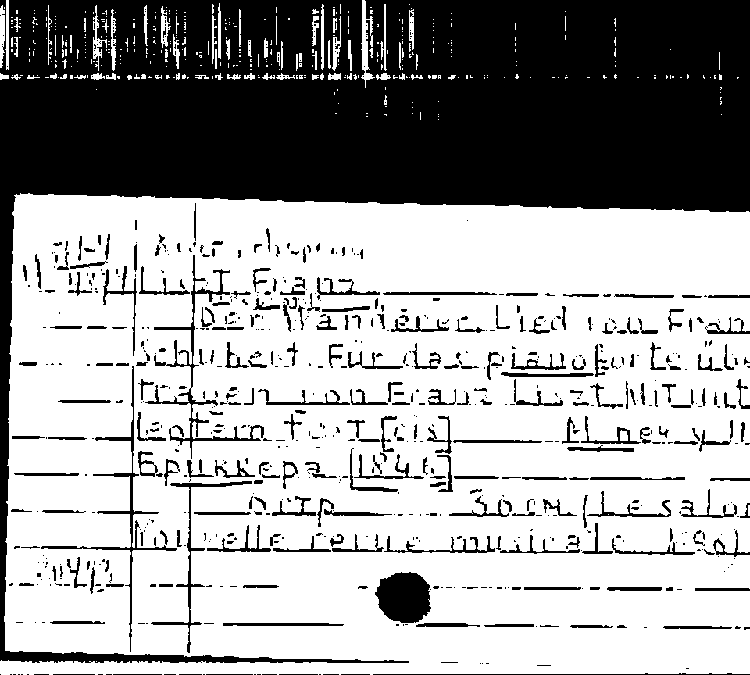 Liszt, Franz
Der Wanderer. Lied von Fran
Schubert. Für das pianoforte übe
tragen von Franz Liszt. Mit unt
legtem Text [cis] М. печ. у
Бриккера [1846]
стр 30 см. (Le salon
Nouvelle revue musicale. №90)